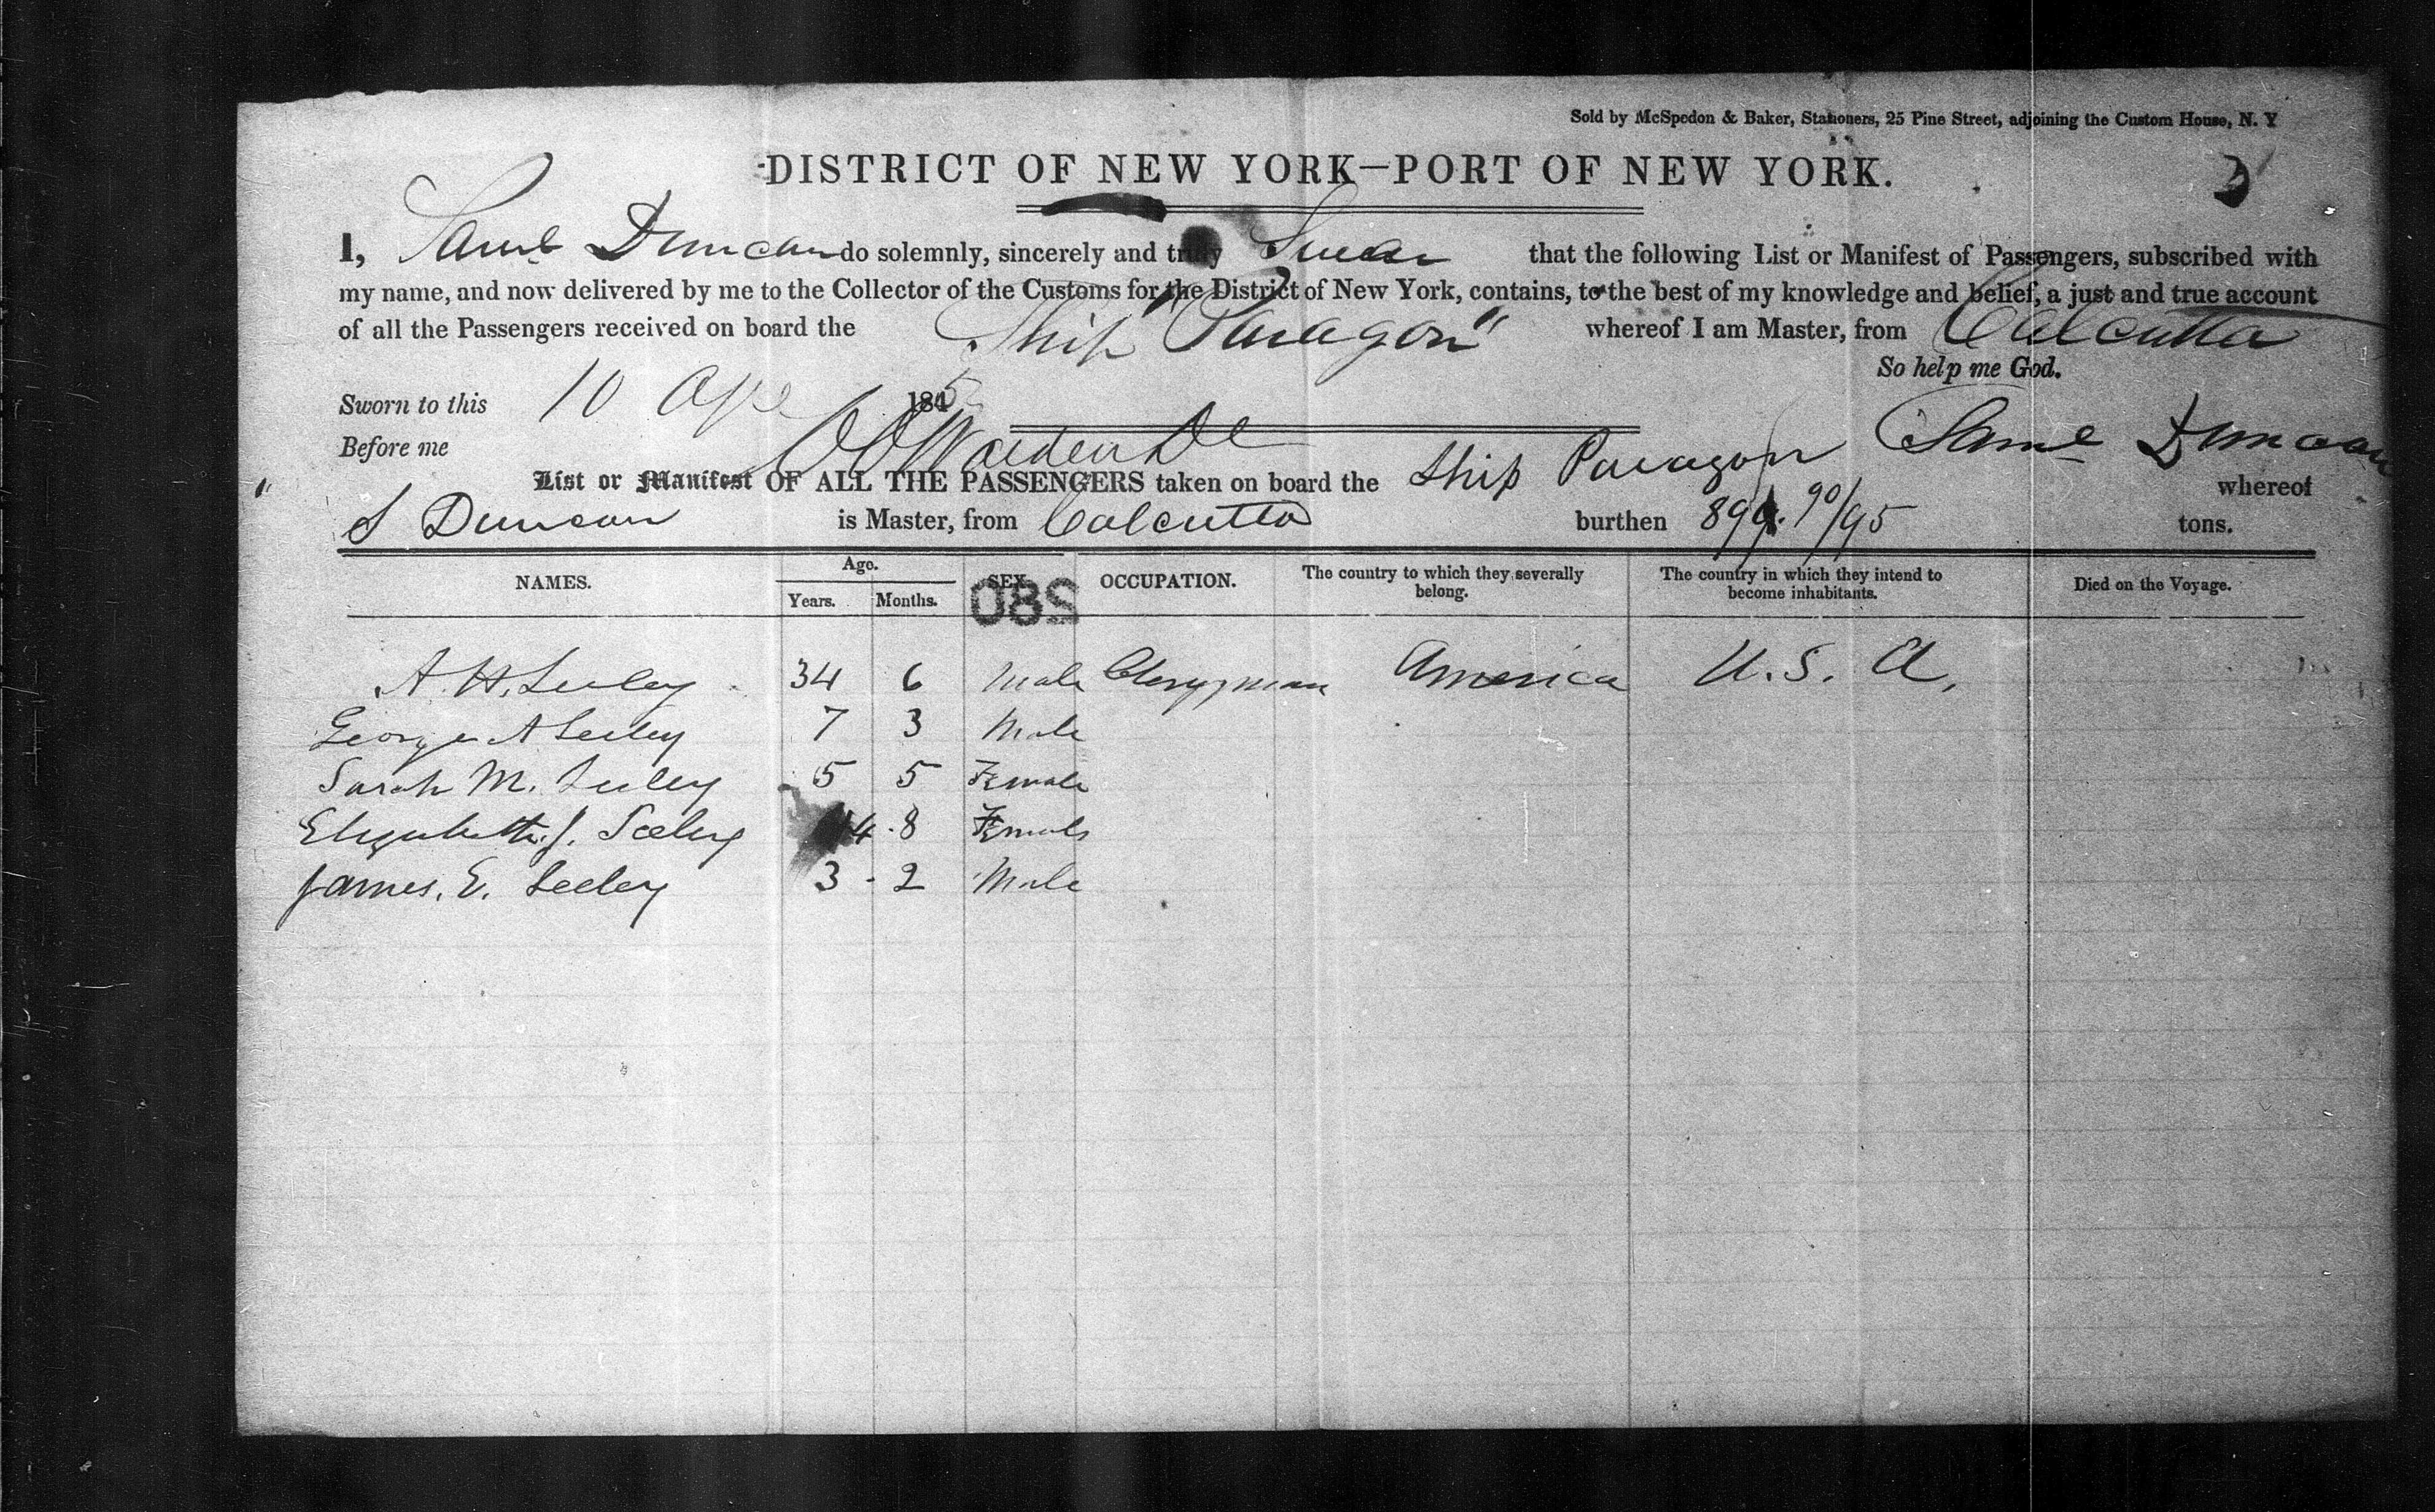 Sold by McSpedon & Baker, Stationers, 25 Pine Street, adjoining the Custom House, N. Y
DISTRICT OF NEW YORK—PORT OF NEW YORK.
I, Saml Duncan do solemnly, sincerely and truly Swear that the following List or Manifest of Passengers, subscribed with
my name, and now delivered by me to the Collector of the Customs for the District of New York, contains, to the best of my knowledge and belief, a just and true account
of all the Passengers received on board the Ship "Paragon" whereof I am Master, from Calcutta
So help me God.
Sworn to this 10 Apl 185
Before me Saml Duncan
List or Manifest OF ALL THE PASSENGERS taken on board the Ship Paragon whereof
S Duncan is Master, from Calcutta burthen 90/95 tons.
NAMES. Age. Years. Months. SEX. OCCUPATION. The country to which they severally belong. The country in which they intend to become inhabitants. Died on the Voyage.
280
A. H. Seeley 34 6 Male Clergyman America U. S. A.
George A Seeley 7 3 Male
Sarah M. Seeley 5 5 Female
Elizabeth J. Seeley 4 8 Female
James. E. Seeley 3 - 2 Male